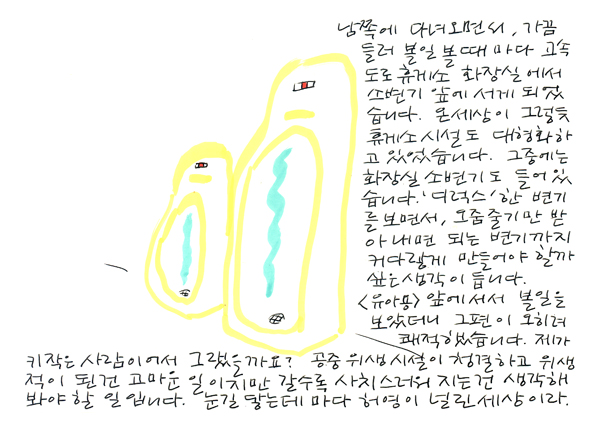 남쪽에 다녀오면서, 가끔
들러 볼일 볼때 마다 고속
도로휴게소 화장실에서
소변기 앞에 서게 되었
습니다. 온세상이 그렇듯
휴게소시설도 대형화하
고 있었습니다. 그중에는
화장실 소변기도 들어있
습니다. '디럭스'한 변기
를 보면서, 오줌줄기만 받
아내면 되는 변기까지
커다랗게 만들어야 할까
싶은생각이 듭니다.
<유아용> 앞에서서 볼일을
보았더니 그편이 오히려
쾌적하였습니다. 제가
키작은 사람이어서 그랬을까요? 공중위생시설이 청결하고 위생
적이 된건 고마운 일이지만 갈수록 사치스러워 지는건 생각해
봐야할 일입니다. 눈길 닿는데 마다 허영이 널린세상이라.